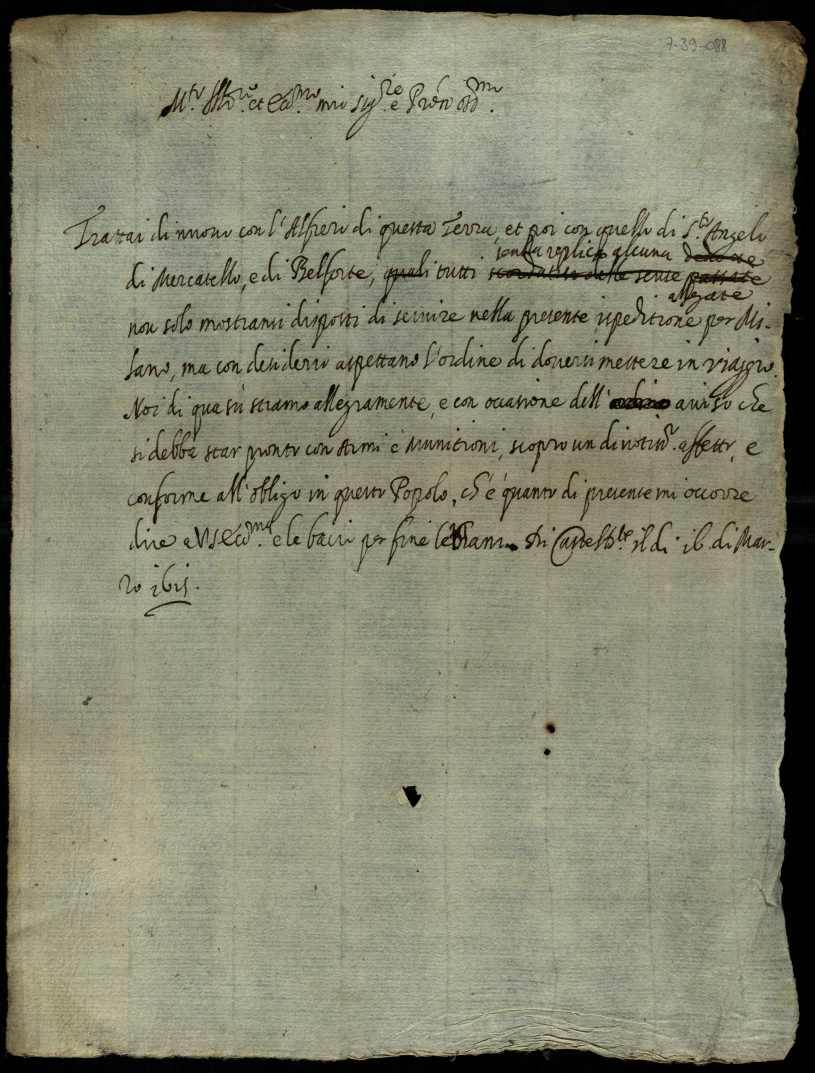 7-39-088
M.to Ill.re et Ecc.mo mio Sig.re e Pron oss.mo
Trattai di nuouo con l'Alfieri di questa Terra, et poi con quello di S.to Angelo
senza replica alcuna
di Mercatello, e di Belforte, quali tutti
allegate
non solo mostransi disposti di seruire nella presente ispeditione per Mi-
lano, ma con desiderio aspettano l'ordine di douersi mettere in viaggio.
Noi di qua sù stiamo allegramente, e con occasione dell' auiso che
si debba star pronto con Armi e Munitioni, scopro un diuotiss.o affetto, e
conforme all'obligo in questo Popolo, ch'è quanto di presente mi occorre
dire a VS Ecc.ma e le bacio per fine le mani. Di il di 16 di Mar-
zo 1615.